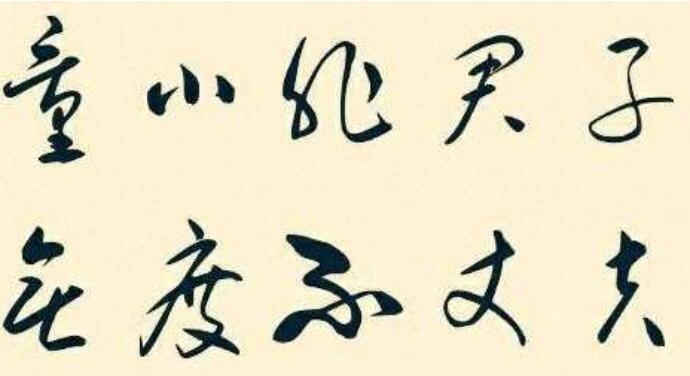 量小非君子
无度不丈夫